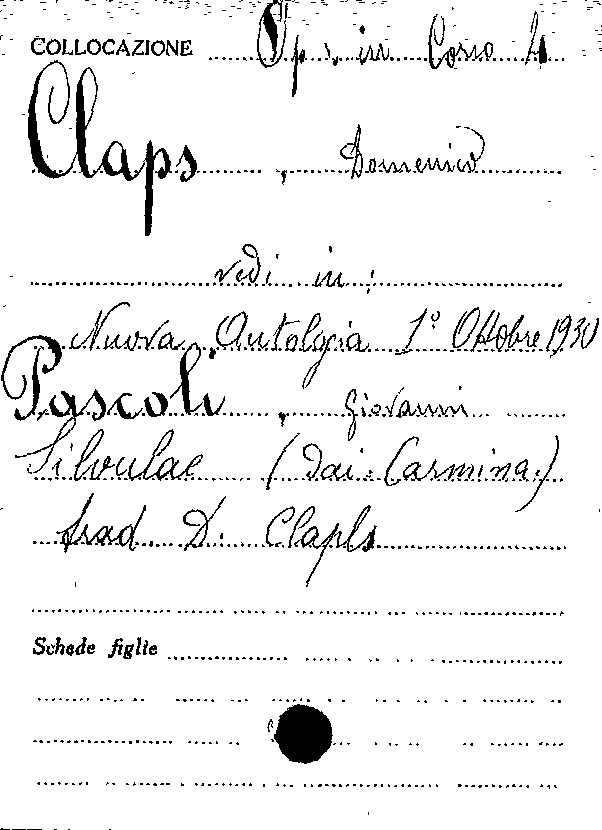 COLLOCAZIONE Op. in Corso 4
Claps, Domenico
vedi in:
Nuova Antolgia 1° Ottobre 1930
Pascoli, Giovanni
Silvulae (dai Carmina)
trad. D. Clapls
Schede figlie